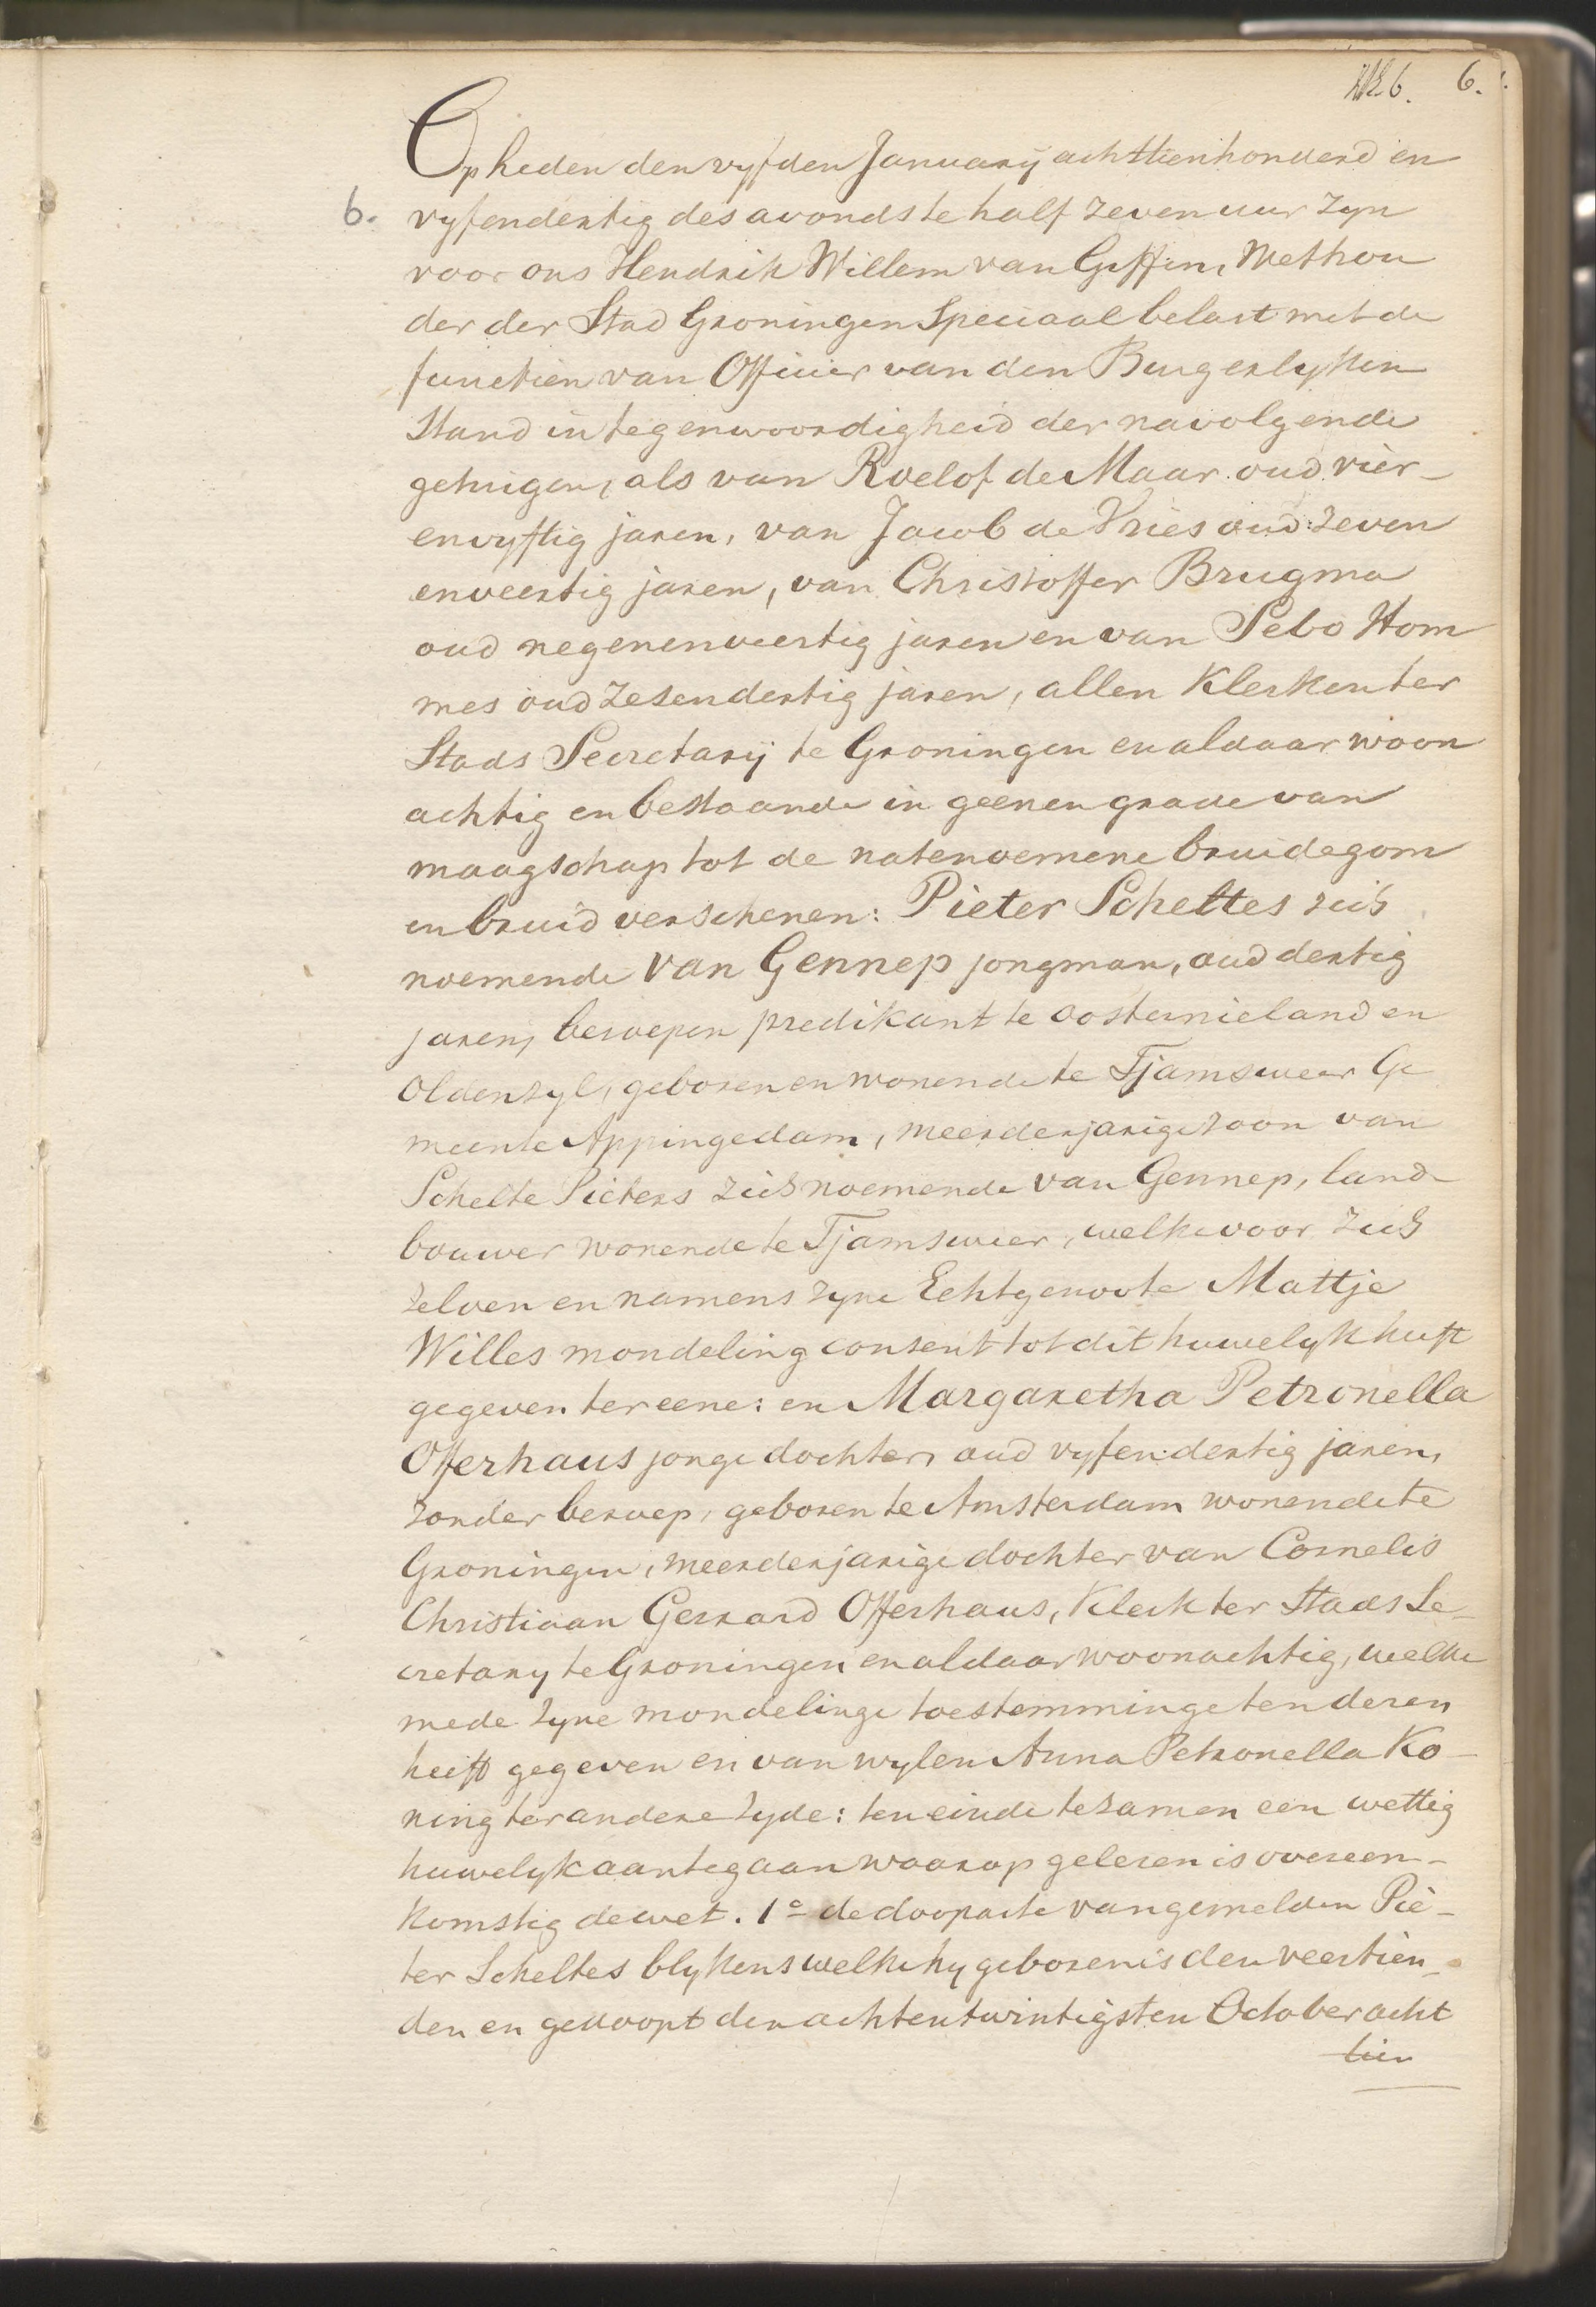 6.
Op heden den vyfden Januarij achttienhonderd en
6. vyfendertig des avonds te half zeven uur zyn
voor ons Hendrik Willem van Giffen, Wethou
der der Stad Groningen Speciaal belast met de
functien van Officier van den Burgerlyken
Stand in tegenwoordigheid der navolgende
getuigen, als van Roelof de Maar oud vier-
envyftig jaren, van Jacob de Vries oud zeven
enveertig jaren, van Christoffer Brugma
oud negenenveertig jaren en van Sebo Hom
mes oud zesendertig jaren, allen Klerken ter
Stads Secretarij te Groningen en aldaar woon
achtig en bestaande in geenen grade van
maagschap tot de natenoemene bruidegom
en bruid verschenen: Pieter Scheltes zich
noemende van Gennep jongman, oud dertig
jaren, beroepen predikant te Oosternieland en
Oldenzyl, geboren en wonende te Tjamsweer Ge
meente Appingedam, meerderjarige zoon van
Schelte Pieters zich noemende van Gennep, land-
bouwer wonende te Tjamsweer, welke voor zich
zelven en namens zyne Echtgenoote Mattje
Willes mondeling consent tot dit huwelyk heeft
gegeven ter eene: en Margaretha Petronella
Offerhaus jonge dochter, oud vyfendertig jaren,
zonder beroep, geboren te Amsterdam wonende te
Groningen, meerderjarige dochter van Cornelis
Christiaan Gerrard Offerhaus, Klerk ter Stads Se-
cretary te Groningen en aldaar woonachtig, welke
mede zyne mondelinge toestemminge ten dezen
heeft gegeven en van wylen Anna Petronella Ko-
ning ter andere zyde: ten einde te zamen een wettig
huwelyk aantegaan waarop gelezen is overeen-
komstig de wet. 1o de doopacte van gemelden Pie-
ter Scheltes blykens welke hy geboren is den veertien-
den en gedoopt den achtentwintigsten October acht
tien